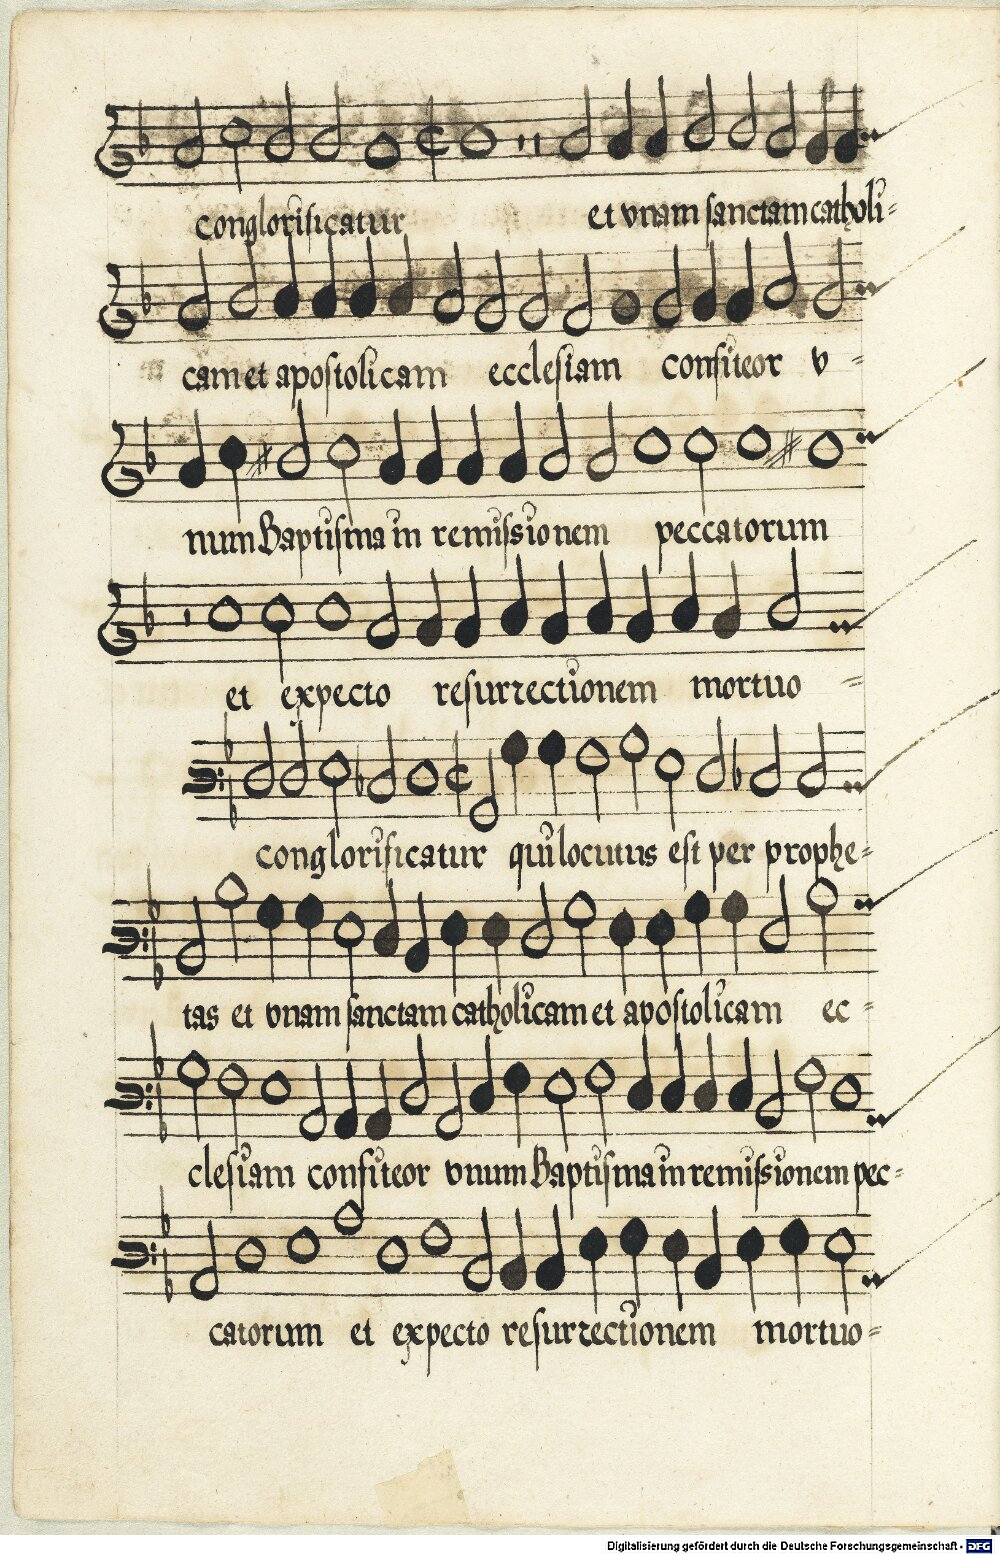 conglorificatur et vnam sanctam catholi=
cam et apostolicam ecclesiam confiteor v=
num Baptisma in remissionem peccatorum
et expecto resurrectionem mortuo=
conglorificatur qui locutus est per prophe=
tas et vnam sanctam catholicam et apostolicam ec=
clesiam confiteor vnum Baptisma in remissionem pec=
catorum et expecto resurrectionem mortuo=
Digitalisierung gefördert durch die Deutsche Forschungsgemeinschaft - DFG